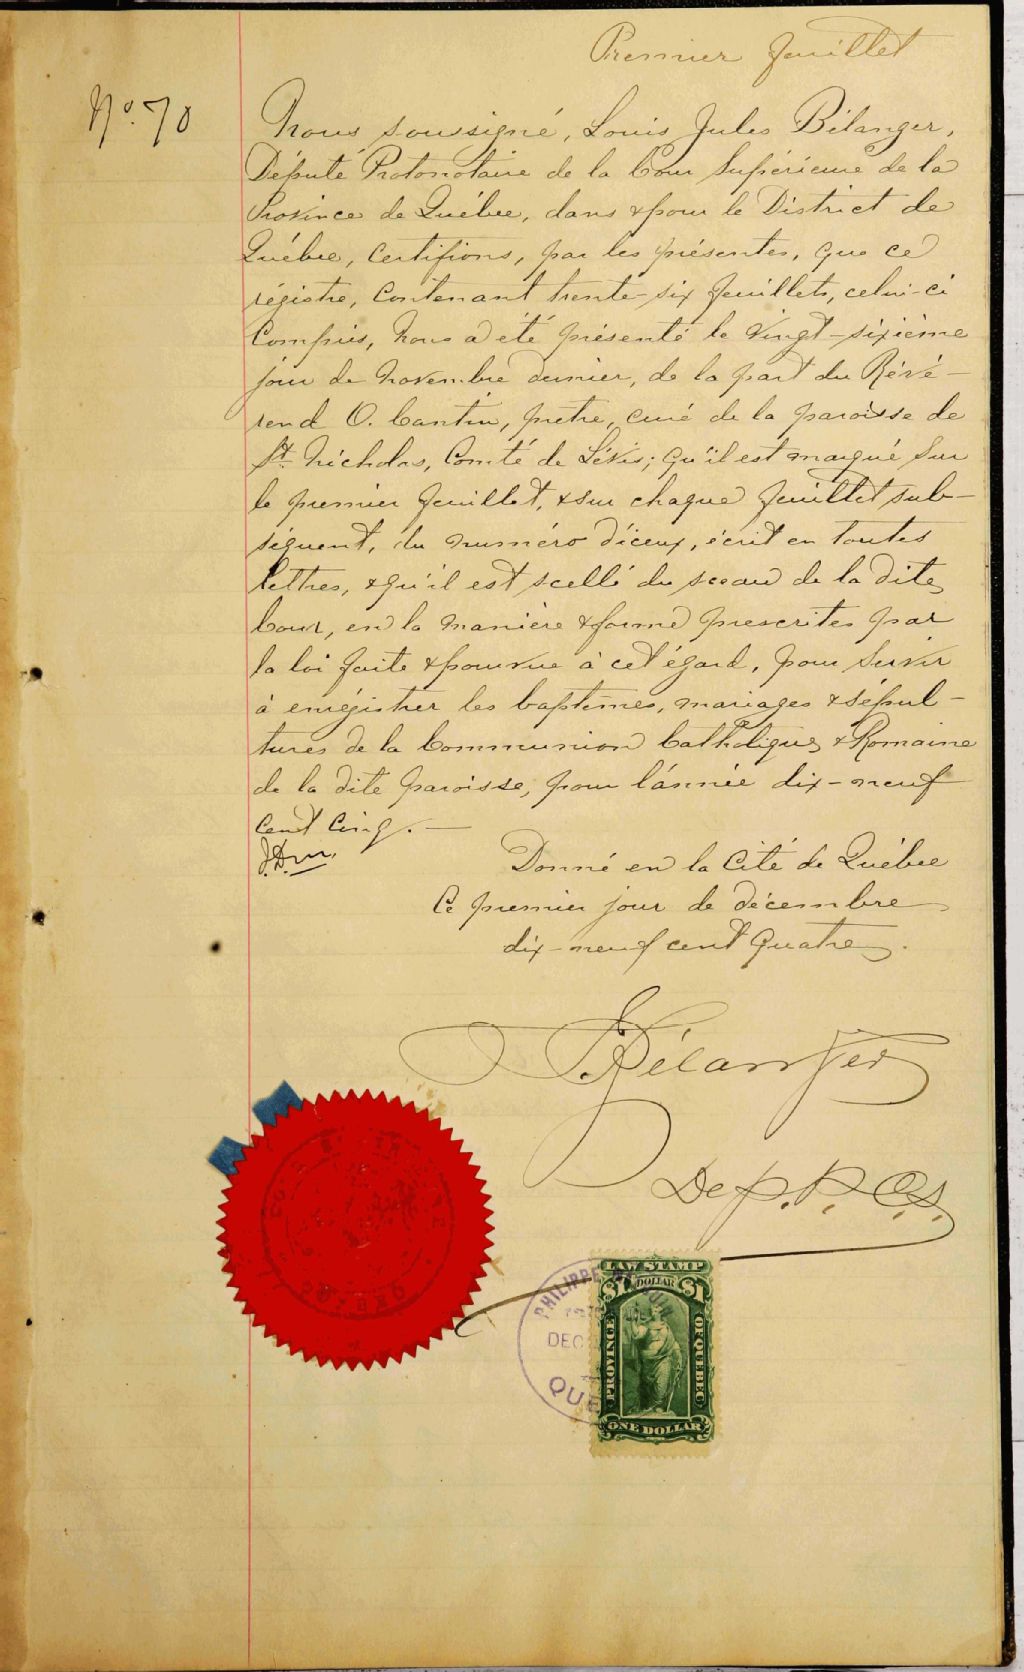 Premier feuillet
No. 70
Nous soussigné, Louis Jules Bélanger,
Député Protonotaire de la Cour Supérieure de la
Province de Québec, dans & pour le District de
Québec, certifions, par les présentes, que ce
régistre, contenant trente-six feuillets, celui-ci
compris, nous a été présenté le vingt-sixième
jour de novembre dernier, de la part du Révé-
rend O. Cantin, prêtre, curé de la paroisse de
St. Nicholas, Comté de Lévis; qu'il est marqué sur
le premier feuillet, & sur chaque feuillet sub-
séquent, du numéro d'iceux, écrit en toutes
lettres, & qu'il est scellé du sceau de la dite
Cour, en la manière & forme prescrites par
la loi faite & pourvue à cet égard, pour servir
à enrégistrer les baptêmes, mariages & sépul-
tures de la Communion Catholique & Romaine
de la dite paroisse, pour l'année dix-neuf
cent cinq. —
Donné en la Cité de Québec
ce premier jour de décembre
dix-neuf cent quatre.
Bélanger
Dep. P. C. S.
LAW STAMP
$1 DOLLAR $1
PROVINCE OF QUEBEC
ONE DOLLAR
PHILIPPE
DEC
QUE
QUEBEC